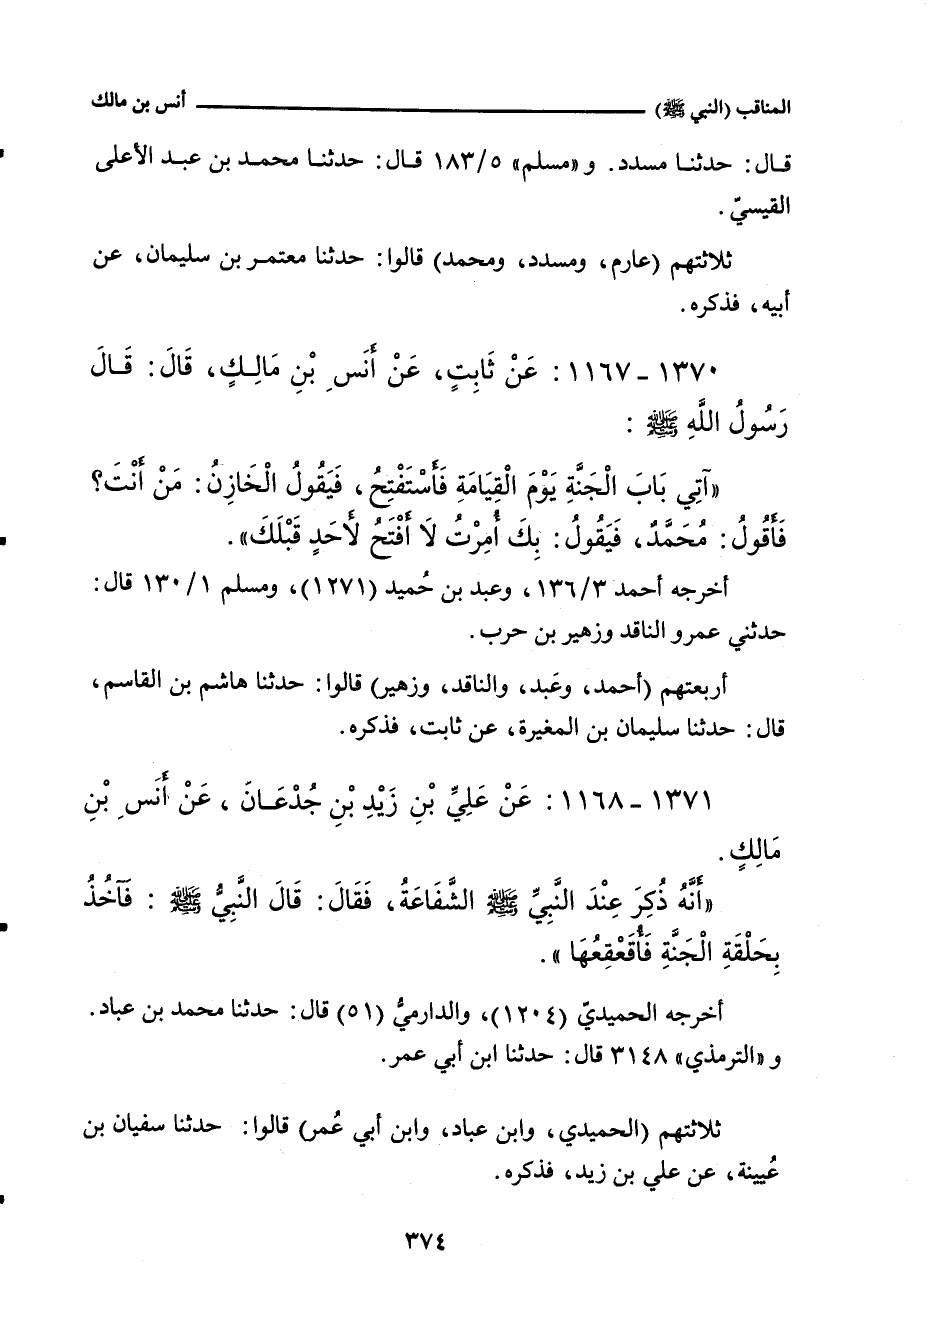 المناقب (النبي ﷺ) ــــــــــــــــــــ أنس بن مالك
قال: حدثنا مسدد. و«مسلم» ١٨٣/٥ قال: حدثنا محمد بن عبد الأعلى
القيسيّ.
ثلاثتهم (عارم، ومسدد، ومحمد) قالوا: حدثنا معتمر بن سليمان، عن
أبيه، فذكره.
١٣٧٠ - ١١٦٧: عَنْ ثَابِتٍ، عَنْ أَنَسِ بْنِ مَالِكٍ، قَالَ: قَالَ
رَسُولُ اللَّهِ ﷺ:
«آتِي بَابَ الْجَنَّةِ يَوْمَ الْقِيَامَةِ فَأَسْتَفْتِحُ، فَيَقُولُ الْخَازِنُ: مَنْ أَنْتَ؟
فَأَقُولُ: مُحَمَّدٌ، فَيَقُولُ: بِكَ أُمِرْتُ لَا أَفْتَحُ لأَحَدٍ قَبْلَكَ».
أخرجه أحمد ١٣٦/٣، وعبد بن حُميد (١٢٧١)، ومسلم ١٣٠/١ قال:
حدثني عمرو الناقد وزهير بن حرب.
أربعتهم (أحمد، وعَبد، والناقد، وزهير) قالوا: حدثنا هاشم بن القاسم،
قال: حدثنا سليمان بن المغيرة، عن ثابت، فذكره.
١٣٧١ - ١١٦٨: عَنْ عَلِيِّ بْنِ زَيْدِ بْنِ جُدْعَانَ، عَنْ أَنَسِ بْنِ
مَالِكٍ.
«أَنَّهُ ذُكِرَ عِنْدَ النَّبِيِّ ﷺ الشَّفَاعَةُ، فَقَالَ: قَالَ النَّبِيُّ ﷺ: فَآخُذُ
بِحَلْقَةِ الْجَنَّةِ فَأُقَعْقِعُهَا».
أخرجه الحميديّ (١٢٠٤)، والدارميُّ (٥١) قال: حدثنا محمد بن عباد.
و«الترمذي» ٣١٤٨ قال: حدثنا ابن أبي عمر.
ثلاثتهم (الحميدي، وابن عباد، وابن أبي عُمر) قالوا: حدثنا سفيان بن
عُيينة، عن علي بن زيد، فذكره.
٣٧٤